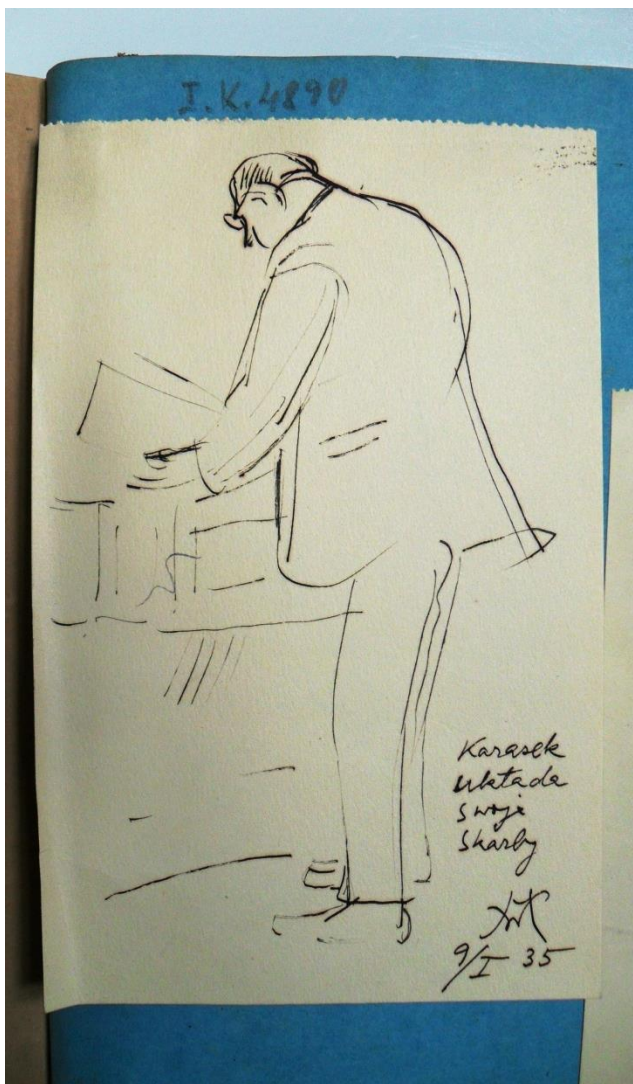 I.K.4890
Karasek
układa
swoje
skarby
9/I 35